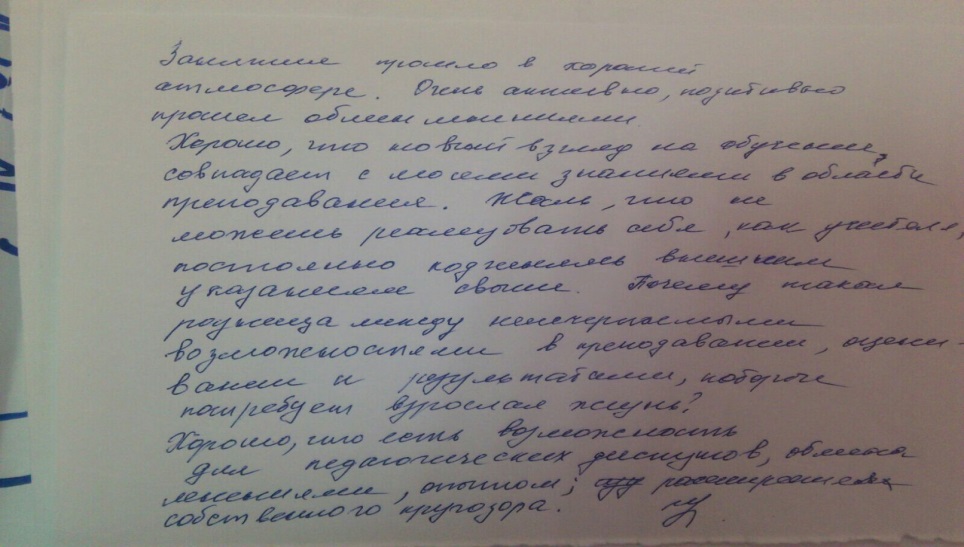 Занятие прошло в хорошей
атмосфере. Очень активно, позитивно
прошел обмен мнениями.
Хорошо, что новый взгляд на обучение,
совпадает с моими знаниями в области
преподавания. Жаль, что не
можешь реализовать себя, как учителя,
постоянно подчиняясь внешним
указаниям свыше. Почему такая
разница между неисчерпаемыми
возможностями в преподавании, оцени-
вании и результатами, которые
потребует взрослая жизнь?
Хорошо, что есть возможность
для педагогических дискуссов, обмена
мнениями, опытом; расширения
собственного кругозора.